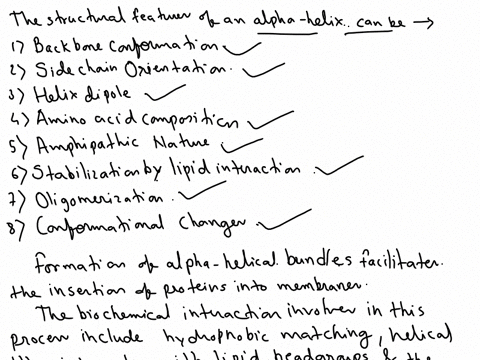 The structural features of an alpha-helix.. can be →
1) Backbone conformation ✓
2) Side chain Orientation. ✓
3) Helix dipole ✓
4) Amino acid composition ✓
5) Amphipathic Nature ✓
6) Stabilization by lipid interaction. ✓
7) Oligomerization. ✓
8) Conformational Changes. ✓
Formation of alpha-helical bundles facilitates.
the insertion of proteins into membranes.
The biochemical interaction involves in this
process include hydrophobic matching, helical
with lipid headgroups & the